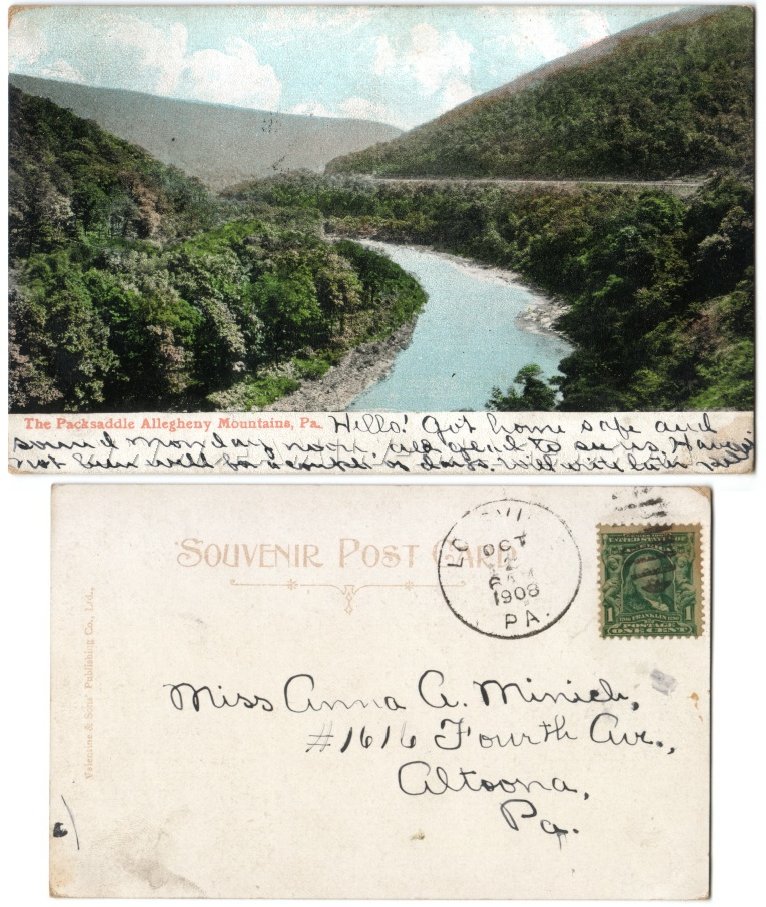 The Packsaddle Allegheny Mountains, Pa. Hello! Got home safe and
sound Monday noon, all glad to see us. Haven't
not been well for a couple of days. Will write later
SOUVENIR POST CARD
OCT
2
6 AM
1908
PA.
UNITED STATES OF
FRANKLIN
1 POSTAGE 1
ONE CENT
Valentine & Sons' Publishing Co., Ltd.,
Miss Anna A. Minich,
#1616 Fourth Ave.,
Altoona,
Pa.